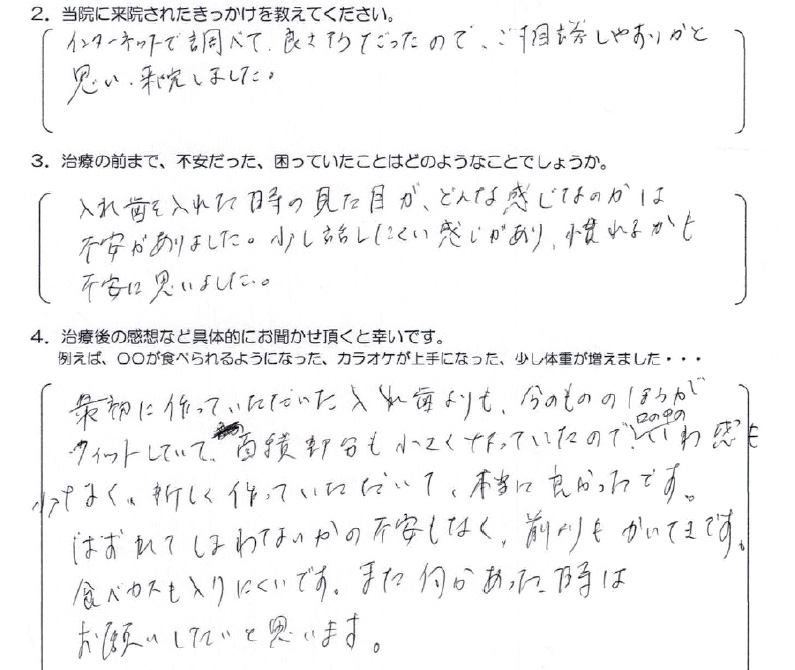 2. 当院に来院されたきっかけを教えてください。
インターネットで調べて、良さそうだったので、ご相談しやありかと
思い、来院しました。
3. 治療の前まで、不安だった、困っていたことはどのようなことでしょうか。
入れ歯を入れた時の見た目が、どんな感じなのかは
不安がありました。少し話しにくい感じがあり、慣れるかも
不安に思いました。
4. 治療後の感想など具体的にお聞かせ頂くと幸いです。
例えば、〇〇が食べられるようになった、カラオケが上手になった、少し体重が増えました・・・
最初に作っていただいた入れ歯よりも、今のもののほうが
フィットしていて、面積部分も小さく作っていたので、口の中のいわ感も
少なく、新しく作っていただいて、本当に良かったです。
はずれてしまわないかの不安もなく、前よりも かいてきです。
食べカスも入りにくいです。また何かあった時は
お願いしたいと思います。